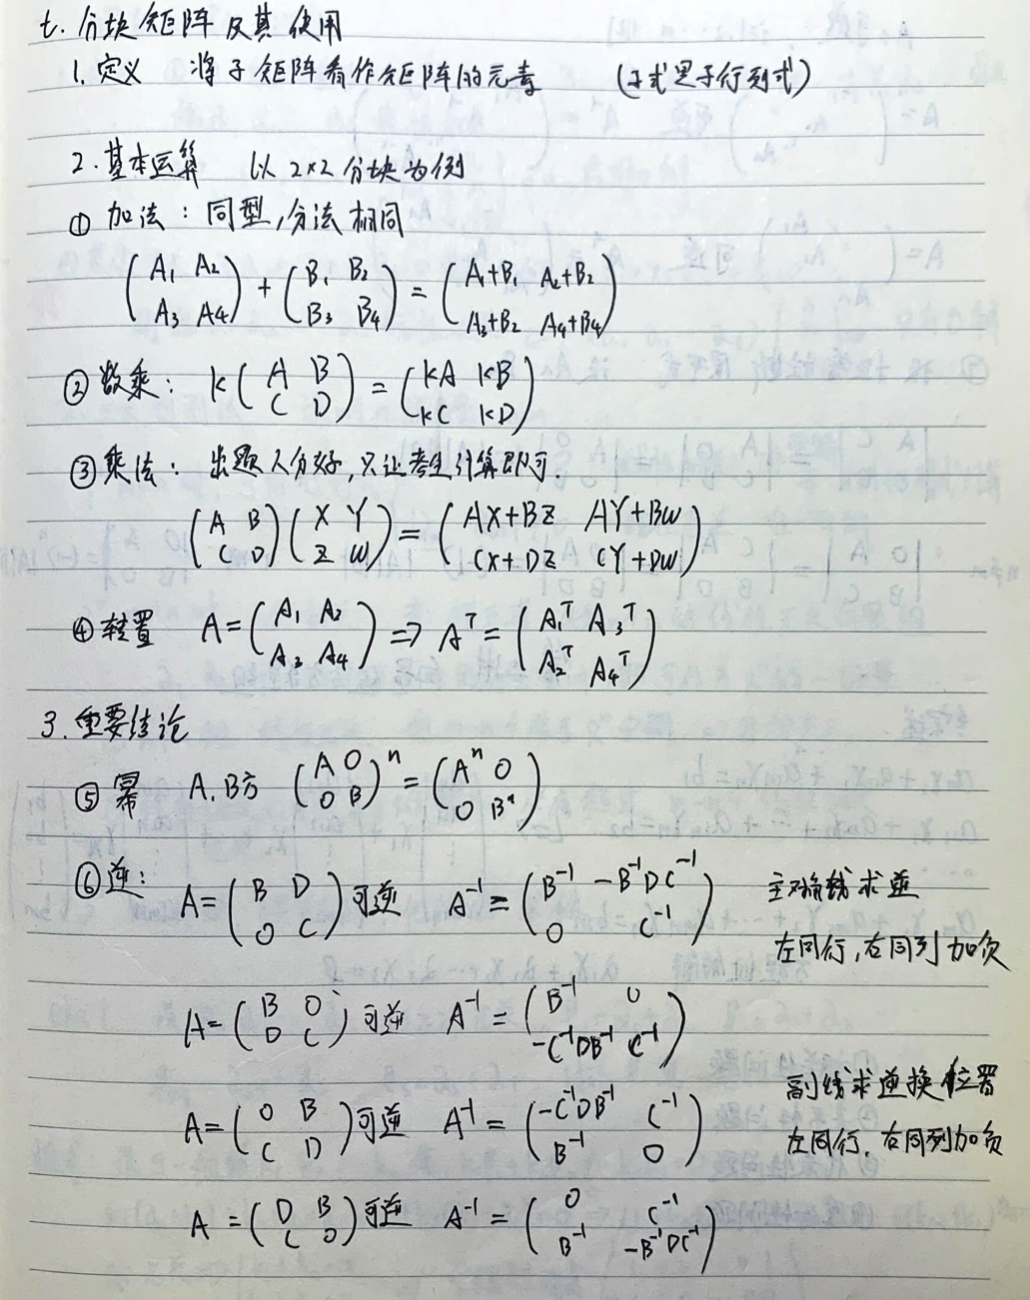 七. 分块矩阵及其使用
1. 定义 将子矩阵看作矩阵的元素 (子式是子行列式)
2. 基本运算 以 2×2 分块为例
① 加法：同型,分法相同
(A₁ A₂; A₃ A₄) + (B₁ B₂; B₃ B₄) = (A₁+B₁ A₂+B₂; A₃+B₂ A₄+B₄)
② 数乘： k(A B; C D) = (kA kB; kC kD)
③ 乘法： 出题人分好,只让考生计算即可
(A B; C D)(X Y; Z W) = (AX+BZ AY+BW; CX+DZ CY+DW)
④ 转置 A = (A₁ A₂; A₃ A₄) ⇒ Aᵀ = (A₁ᵀ A₃ᵀ; A₂ᵀ A₄ᵀ)
3. 重要结论
⑤ 幂 A.B方 (A O; O B)ⁿ = (Aⁿ O; O Bⁿ)
⑥ 逆： A = (B D; O C) 可逆 A⁻¹ = (B⁻¹ -B⁻¹DC⁻¹; O C⁻¹) 主对角线求逆
左同行,右同列加负
A = (B O; D C) 可逆 A⁻¹ = (B⁻¹ O; -C⁻¹DB⁻¹ C⁻¹)
A = (O B; C D) 可逆 A⁻¹ = (-C⁻¹DB⁻¹ C⁻¹; B⁻¹ O) 副线求逆换位置
左同行,右同列加负
A = (D B; C O) 可逆 A⁻¹ = (O C⁻¹; B⁻¹ -B⁻¹DC⁻¹)